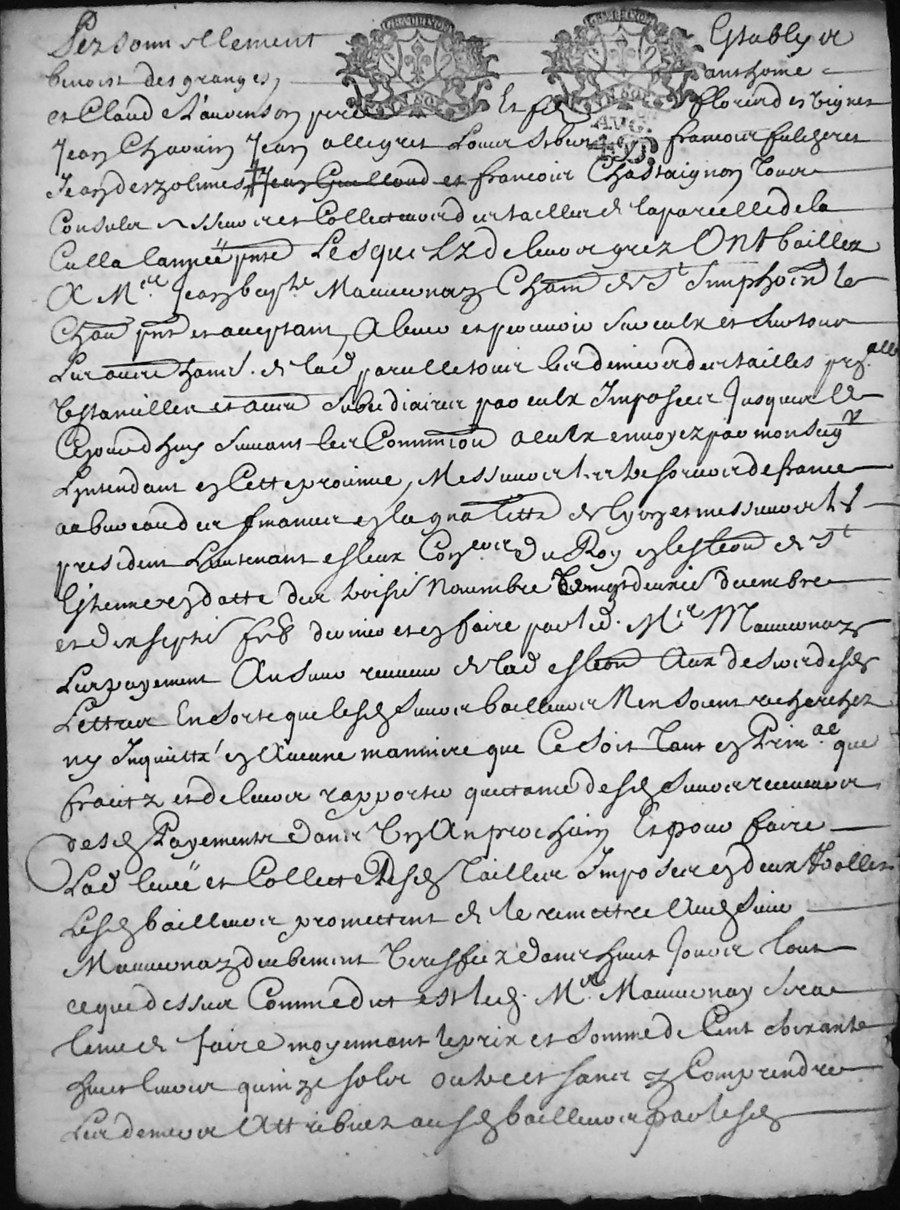 Personnellement Establys
benoist des granges, anthome
et Claude
Jean Chavain Jean allegret Louis françois fulcheret
Jean deszolmes Jean Guilloud et françois Chastaignon tous
Consulz et Collecteurs des tailles de la parcelle de la
Culla l'année pnte Lesquelz de leurs grez Ont baillez
A Mre Jean bapte Mauvernay Chain de St Simphorien le
Chau pnt et acceptant, a lever et percevoir sur eulx et sur tous
Les autres de lad parcelle tous les deniers des tailles
Ustancilles et autres Subcidiaires par eulx Imposees Jusques
Cejourdhuy suivant les Commion a eulx envoyez par monseigr
Lintendant en Cette province, Messieurs les tresoriers de france
au bureau des finances en la g[e]n[er]alitté de lyon et messieurs les
president Lieutenant esleux Conseers du Roy en leslection de St
Estienne en datte des troisie Novembre Vingt deuxie decembre
et dixseptie dernier et en faire par led. Mre Mauvernay
Les payement Aux sieurs receveurs de lad eslection Aux desirs desd
Lettres En sorte que lesd Sieurs bailleurs N'en soient recherchez
ny Inquiettés en Aucune manniere que Ce soit tant en Prinal que
fraitz et de leurs rapporter quittance desd Sieurs receveurs
desd Payements dans Un An prochain Et pour faire
Lad levée et Collecte Desd Tailles Imposees en deux Rolles
Lesd bailleurs promettent de le remettre Aud Sieur
Mauvernay deubement veriffiez dans huit Jours tout
ce que dessus Comme dict est led. Mre Mauvernay sera
tenu de faire moyennant le prix et somme de Cent soixante
huict livres quinze solz outre et sans y Comprendre
Les deniers Attribuez ausd bailleurs par lesd